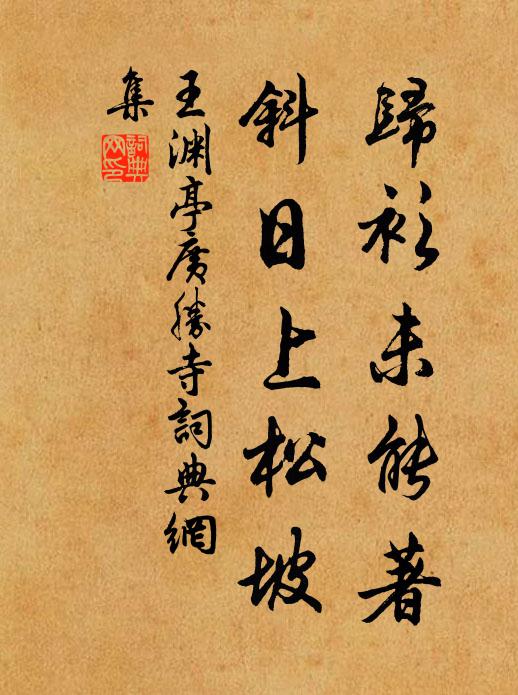 歸衫未能著
斜日上松坡
王渊亭廣勝寺詞典網
集
詞典
网印